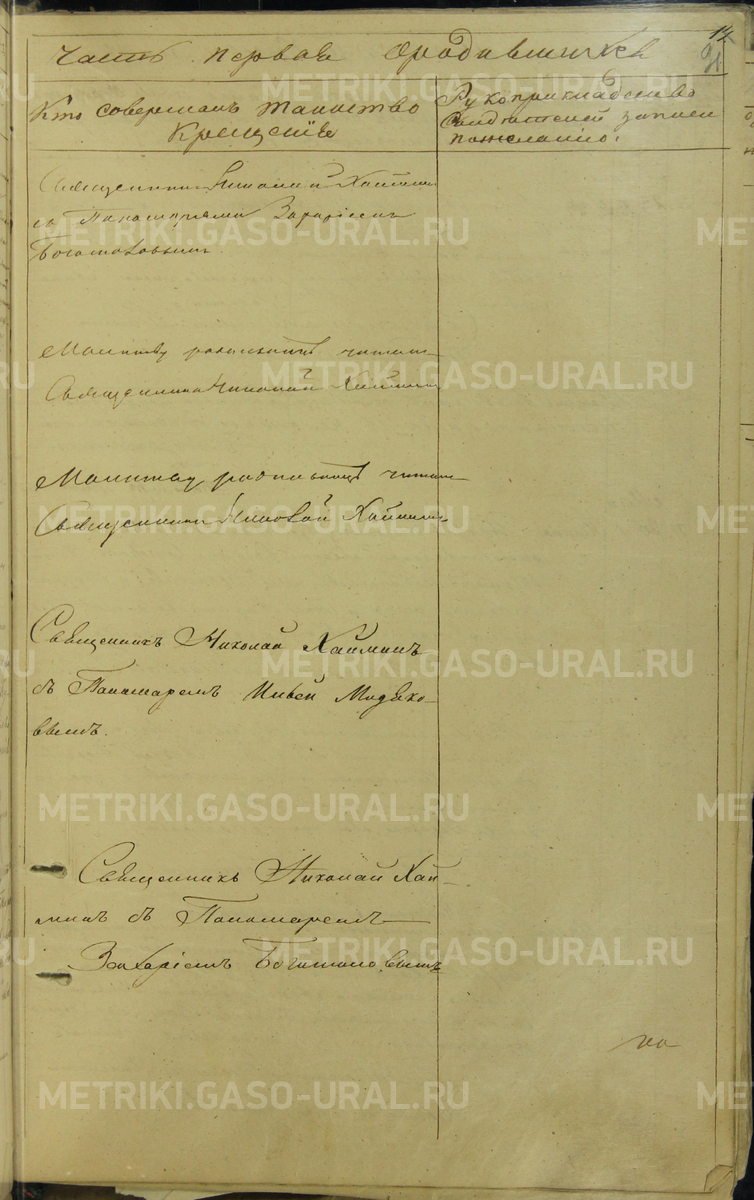 Часть первая о родившихся
Кто совершалъ таинство
Крещенія
Рукоприкладство
свидѣтелей записи
по желанію.
Священникъ Николай Хайминъ
съ Пономаремъ Захаріемъ
Богомоловымъ.
Молитву родильницѣ читалъ
Священникъ Николай Хайминъ
Молитву родильницѣ читалъ
Священникъ Николай Хайминъ
Священникъ Николай Хайминъ
съ Пономаремъ Ильей
вымъ.
Священникъ Николай Хай-
минъ съ Пономаремъ
Захаріемъ Богомоловымъ
METRIKI.GASO-URAL.RU